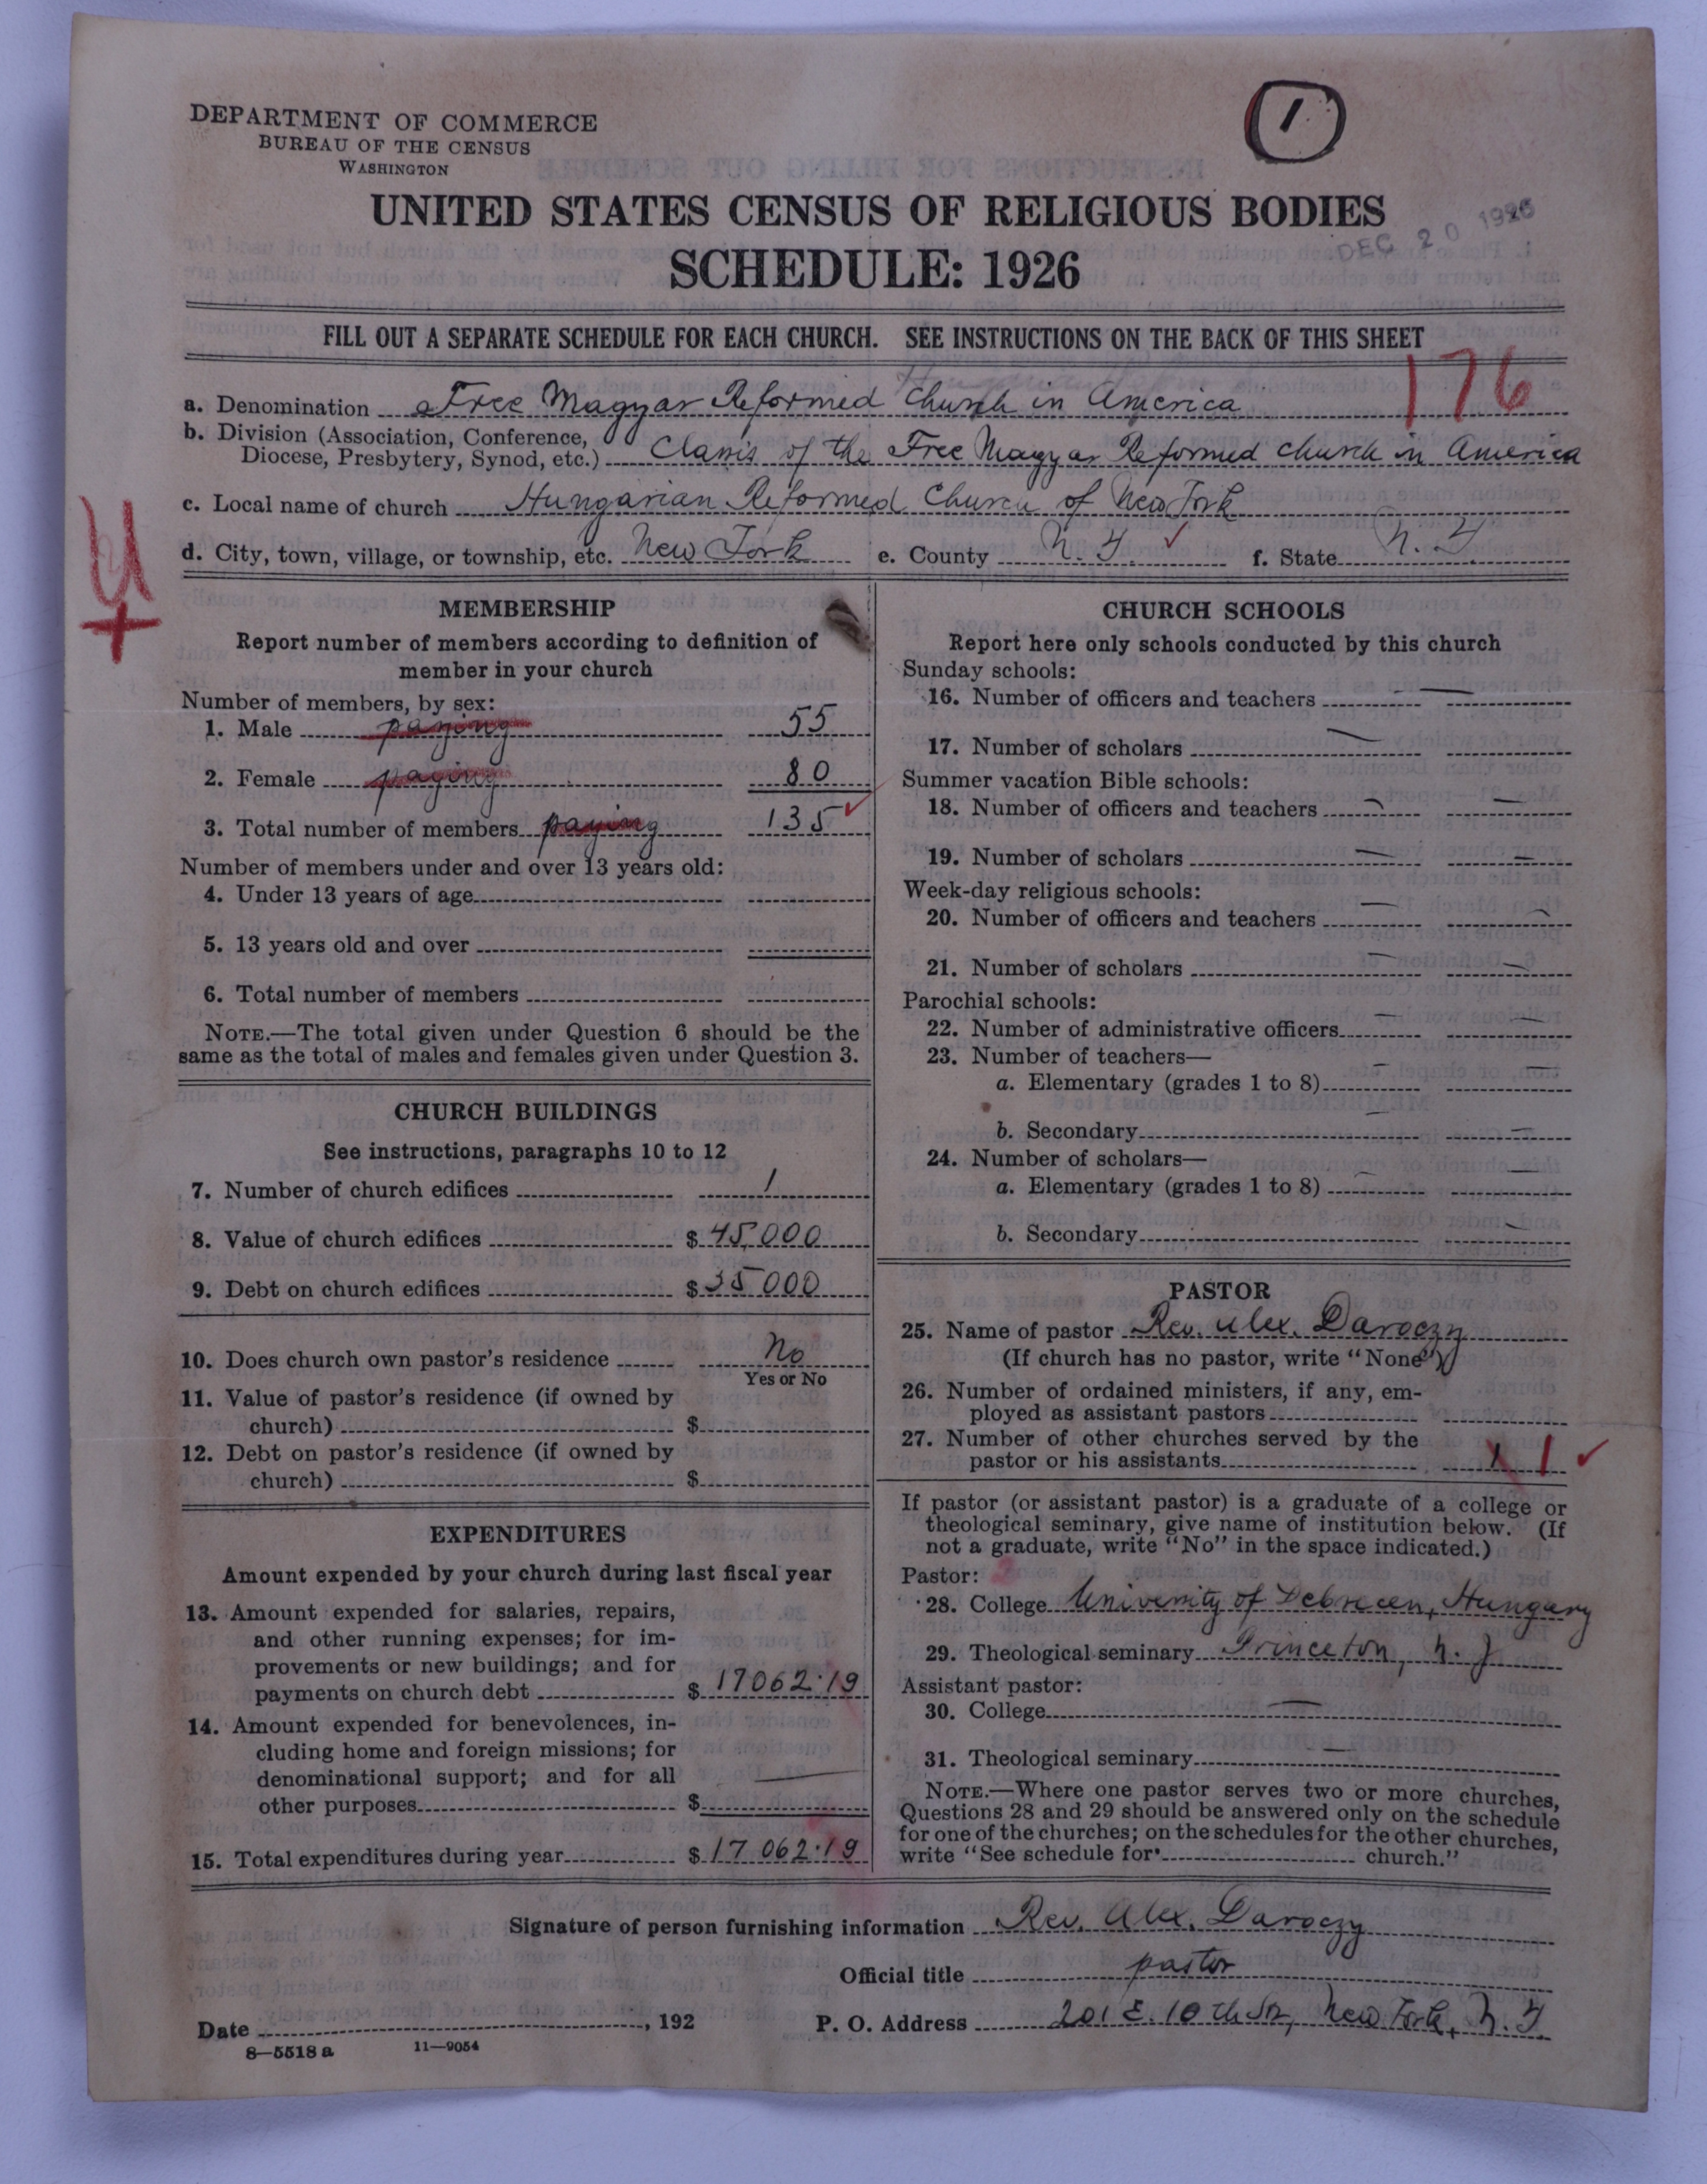 DEPARTMENT OF COMMERCE
BUREAU OF THE CENSUS
WASHINGTON
1
UNITED STATES CENSUS OF RELIGIOUS BODIES
DEC 20 1926
SCHEDULE: 1926
FILL OUT A SEPARATE SCHEDULE FOR EACH CHURCH. SEE INSTRUCTIONS ON THE BACK OF THIS SHEET
176
a. Denomination Free Magyar Reformed Church in America
b. Division (Association, Conference,
Diocese, Presbytery, Synod, etc.) Classis of the Free Magyar Reformed church in America
c. Local name of church Hungarian Reformed Church of New York
d. City, town, village, or township, etc. New York e. County N. Y. f. State N. Y.
MEMBERSHIP
Report number of members according to definition of
member in your church
Number of members, by sex:
1. Male paying 55
2. Female paying 80
3. Total number of members paying 135
Number of members under and over 13 years old:
4. Under 13 years of age
5. 13 years old and over
6. Total number of members
NOTE.—The total given under Question 6 should be the
same as the total of males and females given under Question 3.
CHURCH BUILDINGS
See instructions, paragraphs 10 to 12
7. Number of church edifices 1
8. Value of church edifices $ 45,000
9. Debt on church edifices $ 35000
10. Does church own pastor's residence No
Yes or No
11. Value of pastor's residence (if owned by
church) $
12. Debt on pastor's residence (if owned by
church) $
EXPENDITURES
Amount expended by your church during last fiscal year
13. Amount expended for salaries, repairs,
and other running expenses; for im-
provements or new buildings; and for
payments on church debt $ 17062.19
14. Amount expended for benevolences, in-
cluding home and foreign missions; for
denominational support; and for all
other purposes $ —
15. Total expenditures during year $ 17 062.19
CHURCH SCHOOLS
Report here only schools conducted by this church
Sunday schools:
16. Number of officers and teachers — —
17. Number of scholars —
Summer vacation Bible schools:
18. Number of officers and teachers — —
19. Number of scholars — —
Week-day religious schools:
20. Number of officers and teachers — —
21. Number of scholars — —
Parochial schools:
22. Number of administrative officers — —
23. Number of teachers—
a. Elementary (grades 1 to 8) — —
b. Secondary — —
24. Number of scholars—
a. Elementary (grades 1 to 8) — —
b. Secondary —
PASTOR
25. Name of pastor Rev. Alex. Daroczy
(If church has no pastor, write "None")
26. Number of ordained ministers, if any, em-
ployed as assistant pastors
27. Number of other churches served by the
pastor or his assistants 1 1
If pastor (or assistant pastor) is a graduate of a college or
theological seminary, give name of institution below. (If
not a graduate, write "No" in the space indicated.)
Pastor:
28. College University of Debrecen, Hungary
29. Theological seminary Princeton, N. J.
Assistant pastor:
30. College —
31. Theological seminary —
NOTE.—Where one pastor serves two or more churches,
Questions 28 and 29 should be answered only on the schedule
for one of the churches; on the schedules for the other churches,
write "See schedule for church."
Signature of person furnishing information Rev. Alex. Daroczy
Official title pastor
Date , 192 P. O. Address 201 E. 10th Str, New York, N. Y.
8—5518 a 11—9054